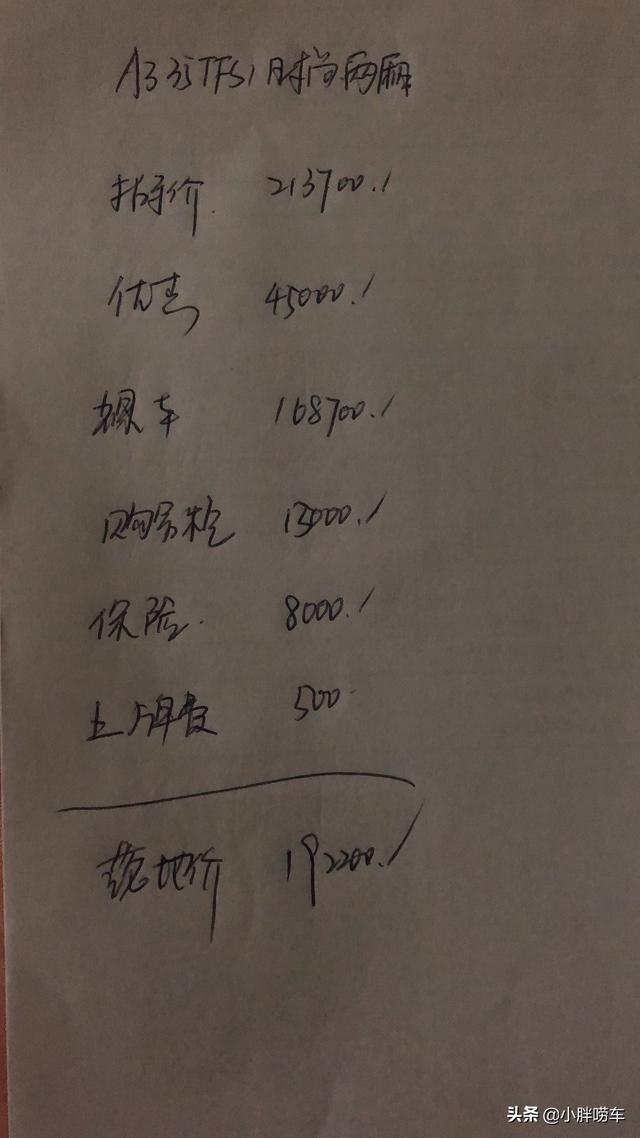 A3 35TFSI 时尚两厢
指导价. 213700./
优惠 45000./
裸车 168700./
购置税 15000./
保险. 8000./
上牌费 500
落地价 192200./
头条 @小胖唠车